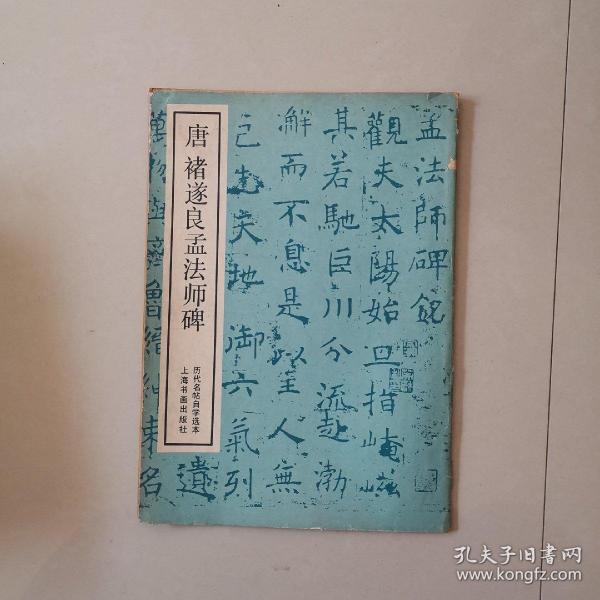 唐 褚遂良孟法师碑
历代名帖自学选本
上海书画出版社
孟法師碑銘
觀夫太陽始旦指崦嵫
其若馳巨川分流赴渤
澥而不息是以至人無
己先天地御六氣列
遺
萬物與齊魯縉紳東名
孔夫子旧书网
www.kongfz.com